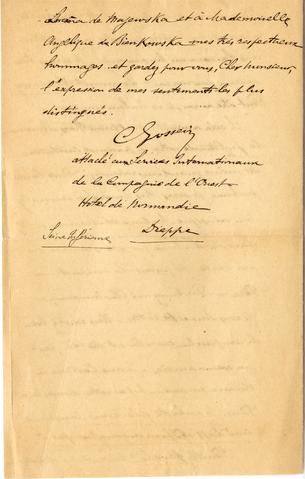 de Majewska et à Mademoiselle
Angélique de Sienkowska mes très respectueux
hommages et gardez pour vous, Cher Monsieur,
l'expression de mes sentiments les plus
distingués.
C Gosselin
attaché aux Services Internationaux
de la Compagnie de l'Ouest
Hotel de Normandie
Dieppe
Seine Inférieure